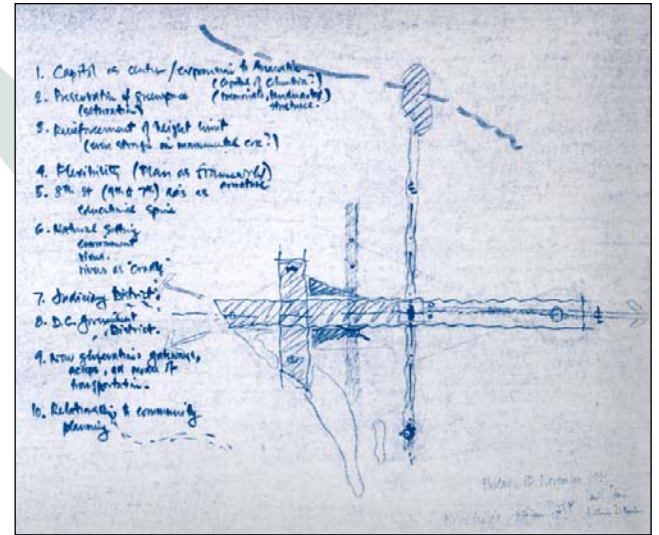 1. Capitol as center/expansion to Anacostia
(Capitol of Columbia?)
2. Preservation of greenspace (memorials, landmarks)
(saturation) structures.
3. Reinforcement of height limit
(even stronger in monumental core?)
4. Flexibility (Plan as framework)
5. 8th St (9th & 7th) as armature
educational spine
6. Natural Setting
environment
views.
rivers as "cradle"
7. Judiciary District.
8. D.C. Government
District.
9. New generation gateways,
access, and modes of
transportation.
10. Relationship to community
planning
November